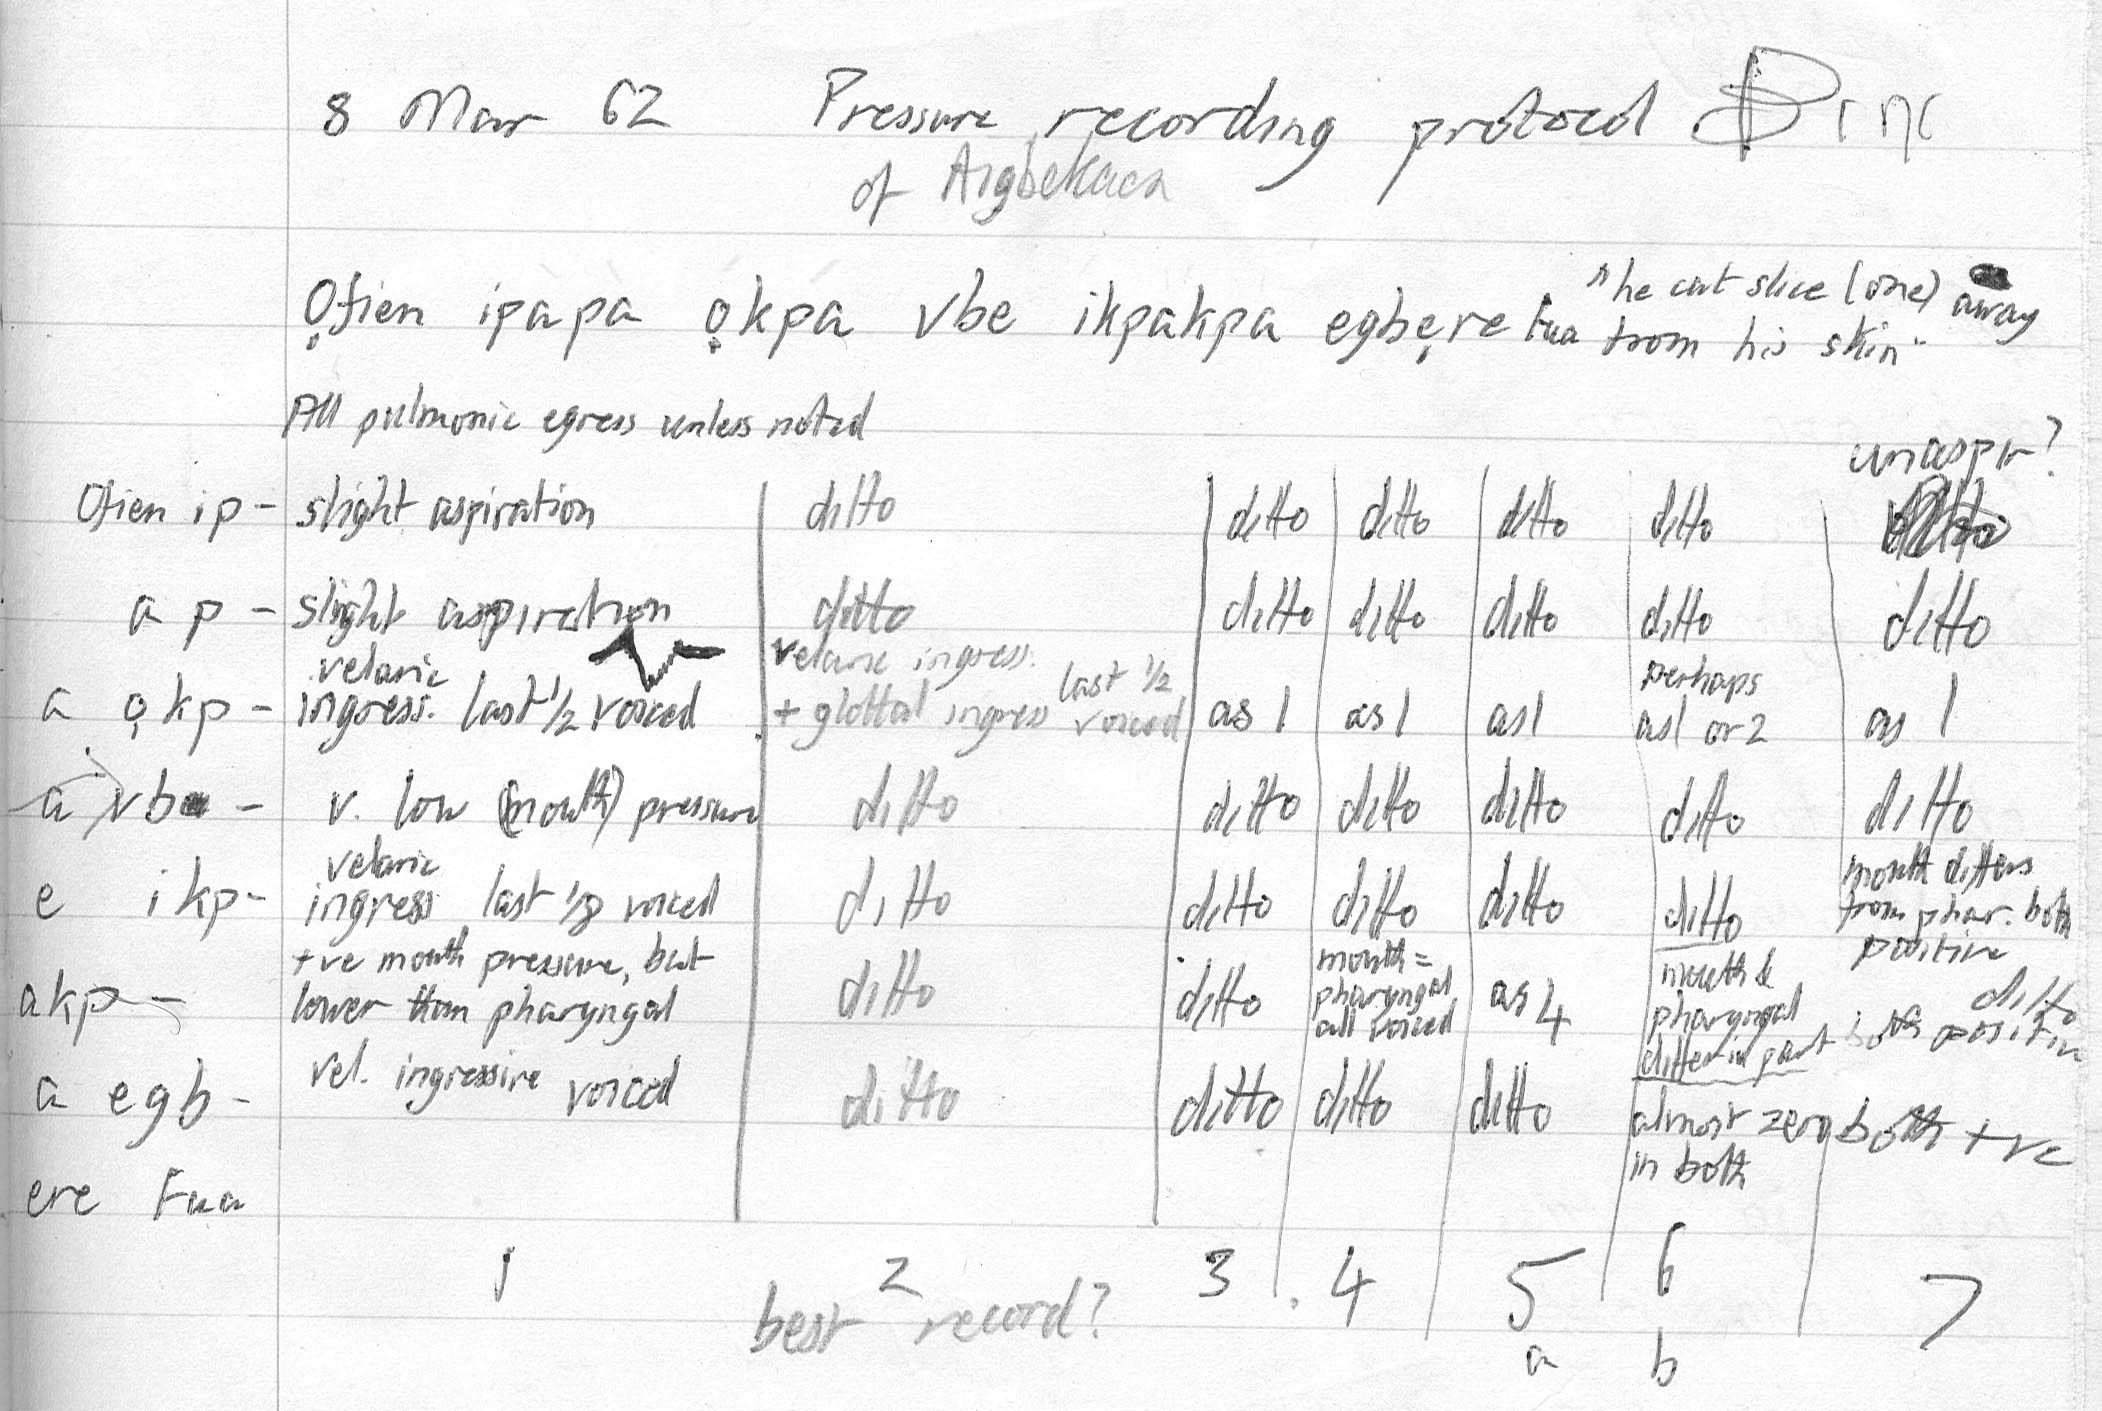 8 Mar 62 Pressure recording protocol
of Aigbekaen
Ọfien ipapa ọkpa vbe ikpakpa egbẹre fua "he cut slice (one) away
from his skin"
All pulmonic egress unless noted
unaspir?
Ofien ip - slight aspiration ditto ditto ditto ditto ditto
a p - slight aspiration ditto ditto ditto ditto ditto ditto
a ọkp - velaric ingress. last 1/2 voiced velaric ingress. + glottal ingress last 1/2 voiced as 1 as 1 as 1 perhaps as 1 or 2 as 1
a vb - v. low (mouth) pressure ditto ditto ditto ditto ditto ditto
e ikp - velaric ingress last voiced ditto ditto ditto ditto ditto mouth differs from phar. both positive
akp - +ve mouth pressure, but lower than pharyngal ditto ditto mouth = pharyngal all voiced as 4 mouth & pharyngal differ in part ditto both positive
a egb - vel. ingressive voiced ditto ditto ditto ditto almost zero in both both +ve
ere fua
1 2 3 4 5 6 7
best record? a b